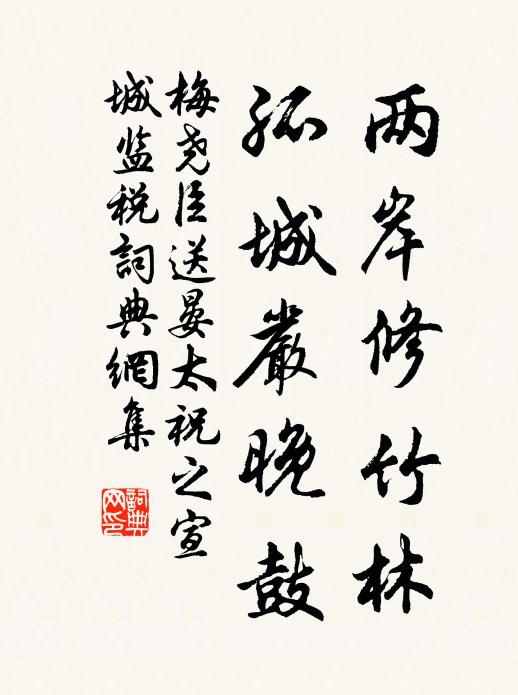 两岸修竹林
孤城嚴晚鼓
梅尧臣送晏太祝之宣
城监税詞典網集
詞典
网印